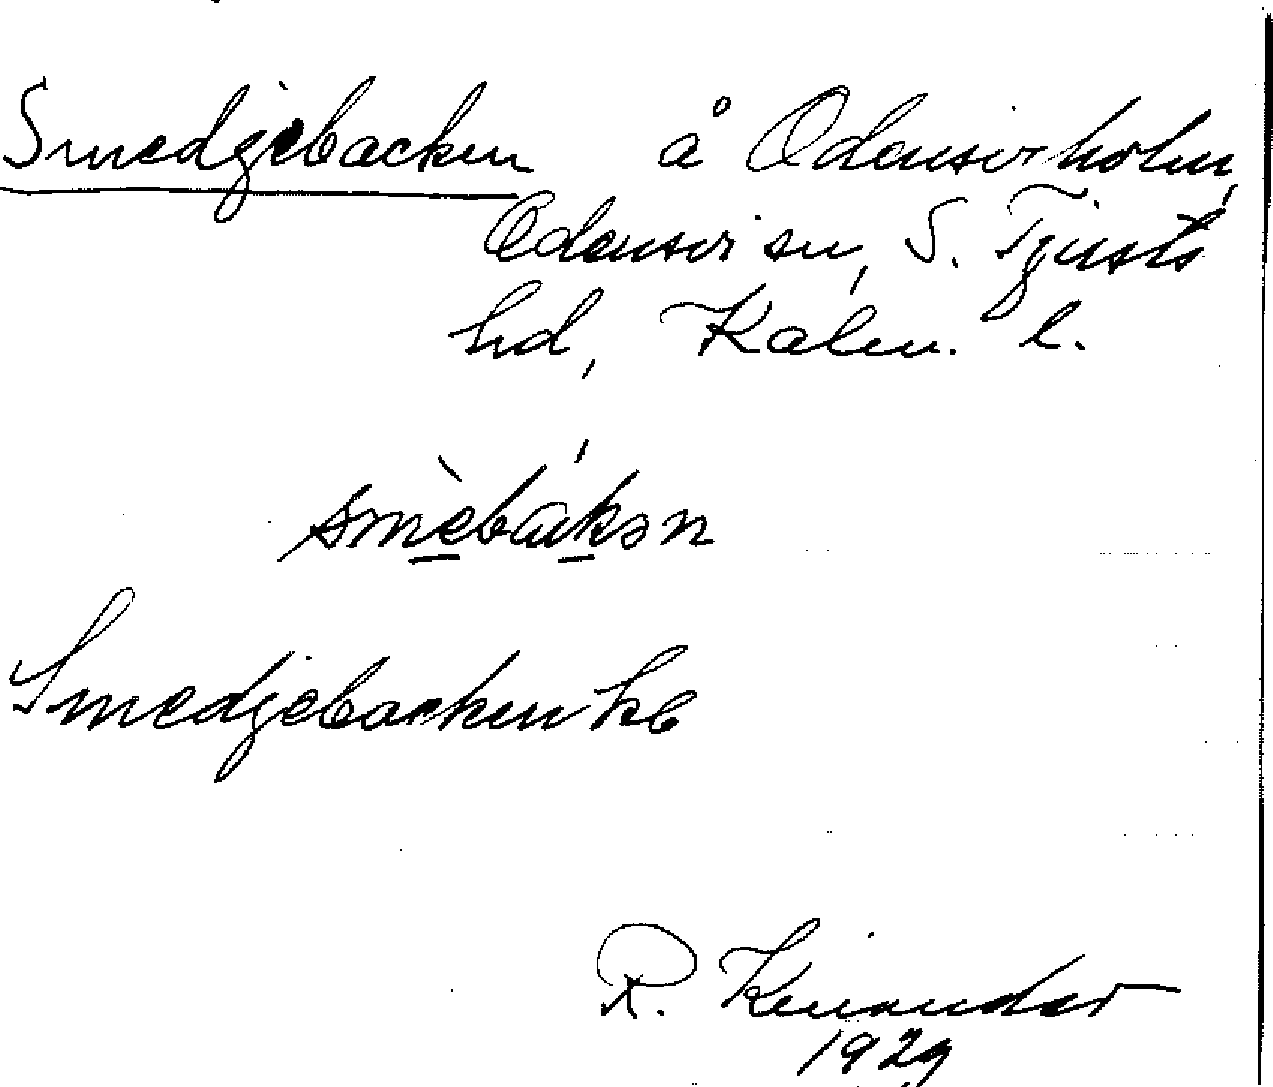 Smedjebacken å Odensviholm,
Odensvi sn, S. Tjusts
hd, Kalm. l.
smèbákən
Smedjebacken kb
R. Kinander
1929